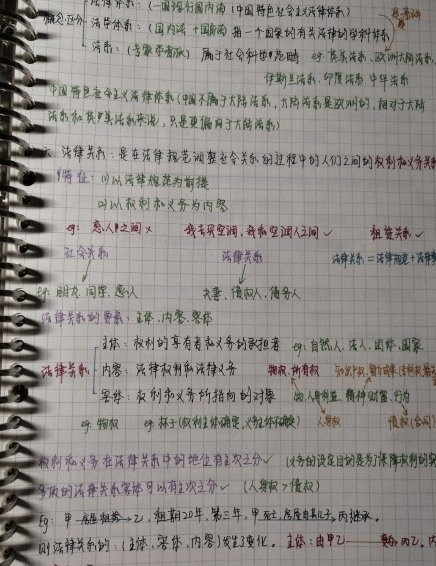 法律体系：（一国现行国内法（中国特色社会主义法律体系）
概念区分 法学体系：（国内法+国际法）指一个国家的有关法律的学科体系
法系：属于社会科学范畴 eg: 英美法系、欧洲大陆法系、
伊斯兰法系、印度法系、中华法系
中国特色社会主义法律体系（中国不属于大陆法系，大陆法系是欧洲的，相对于大陆
法系和英美法系来说，只是更偏向于大陆法系）
六、法律关系：是在法律规范调整社会关系的过程中的人们之间的权利和义务关系
特征：(1)以法律规范为前提
(2)以权利和义务为内容
eg: 恋人之间× 我去买空调，我和空调人之间✓ 租赁关系✓
社会关系 法律关系 法律关系=法律规范+法律事
eg: 朋友、同学、恋人 夫妻、债权人、债务人
法律关系的要素：主体、内容、客体
主体：权利的享有者和义务的承担者 eg: 自然人、法人、团体、国家
法律关系 内容：法律权利和法律义务 物权、所有权
客体：权利和义务所指向的对象 物、人身利益、精神财富、行为
eg: 物权 eg: 杯子（权利主体确定，义务主体不确定） 人身权 债权（合同）
权利和义务在法律关系中的地位有主次之分✓（义务的设定目的是为了保障权利的实
多项的法律关系客体可以有主次之分✓（人身权>债权）
Eg: 甲 房屋租赁→乙，租期20年，第三年，甲死亡，房屋由其儿子丙继承。
则法律关系的：（主体、客体、内容）发生了变化。主体：由甲乙 丙乙。内